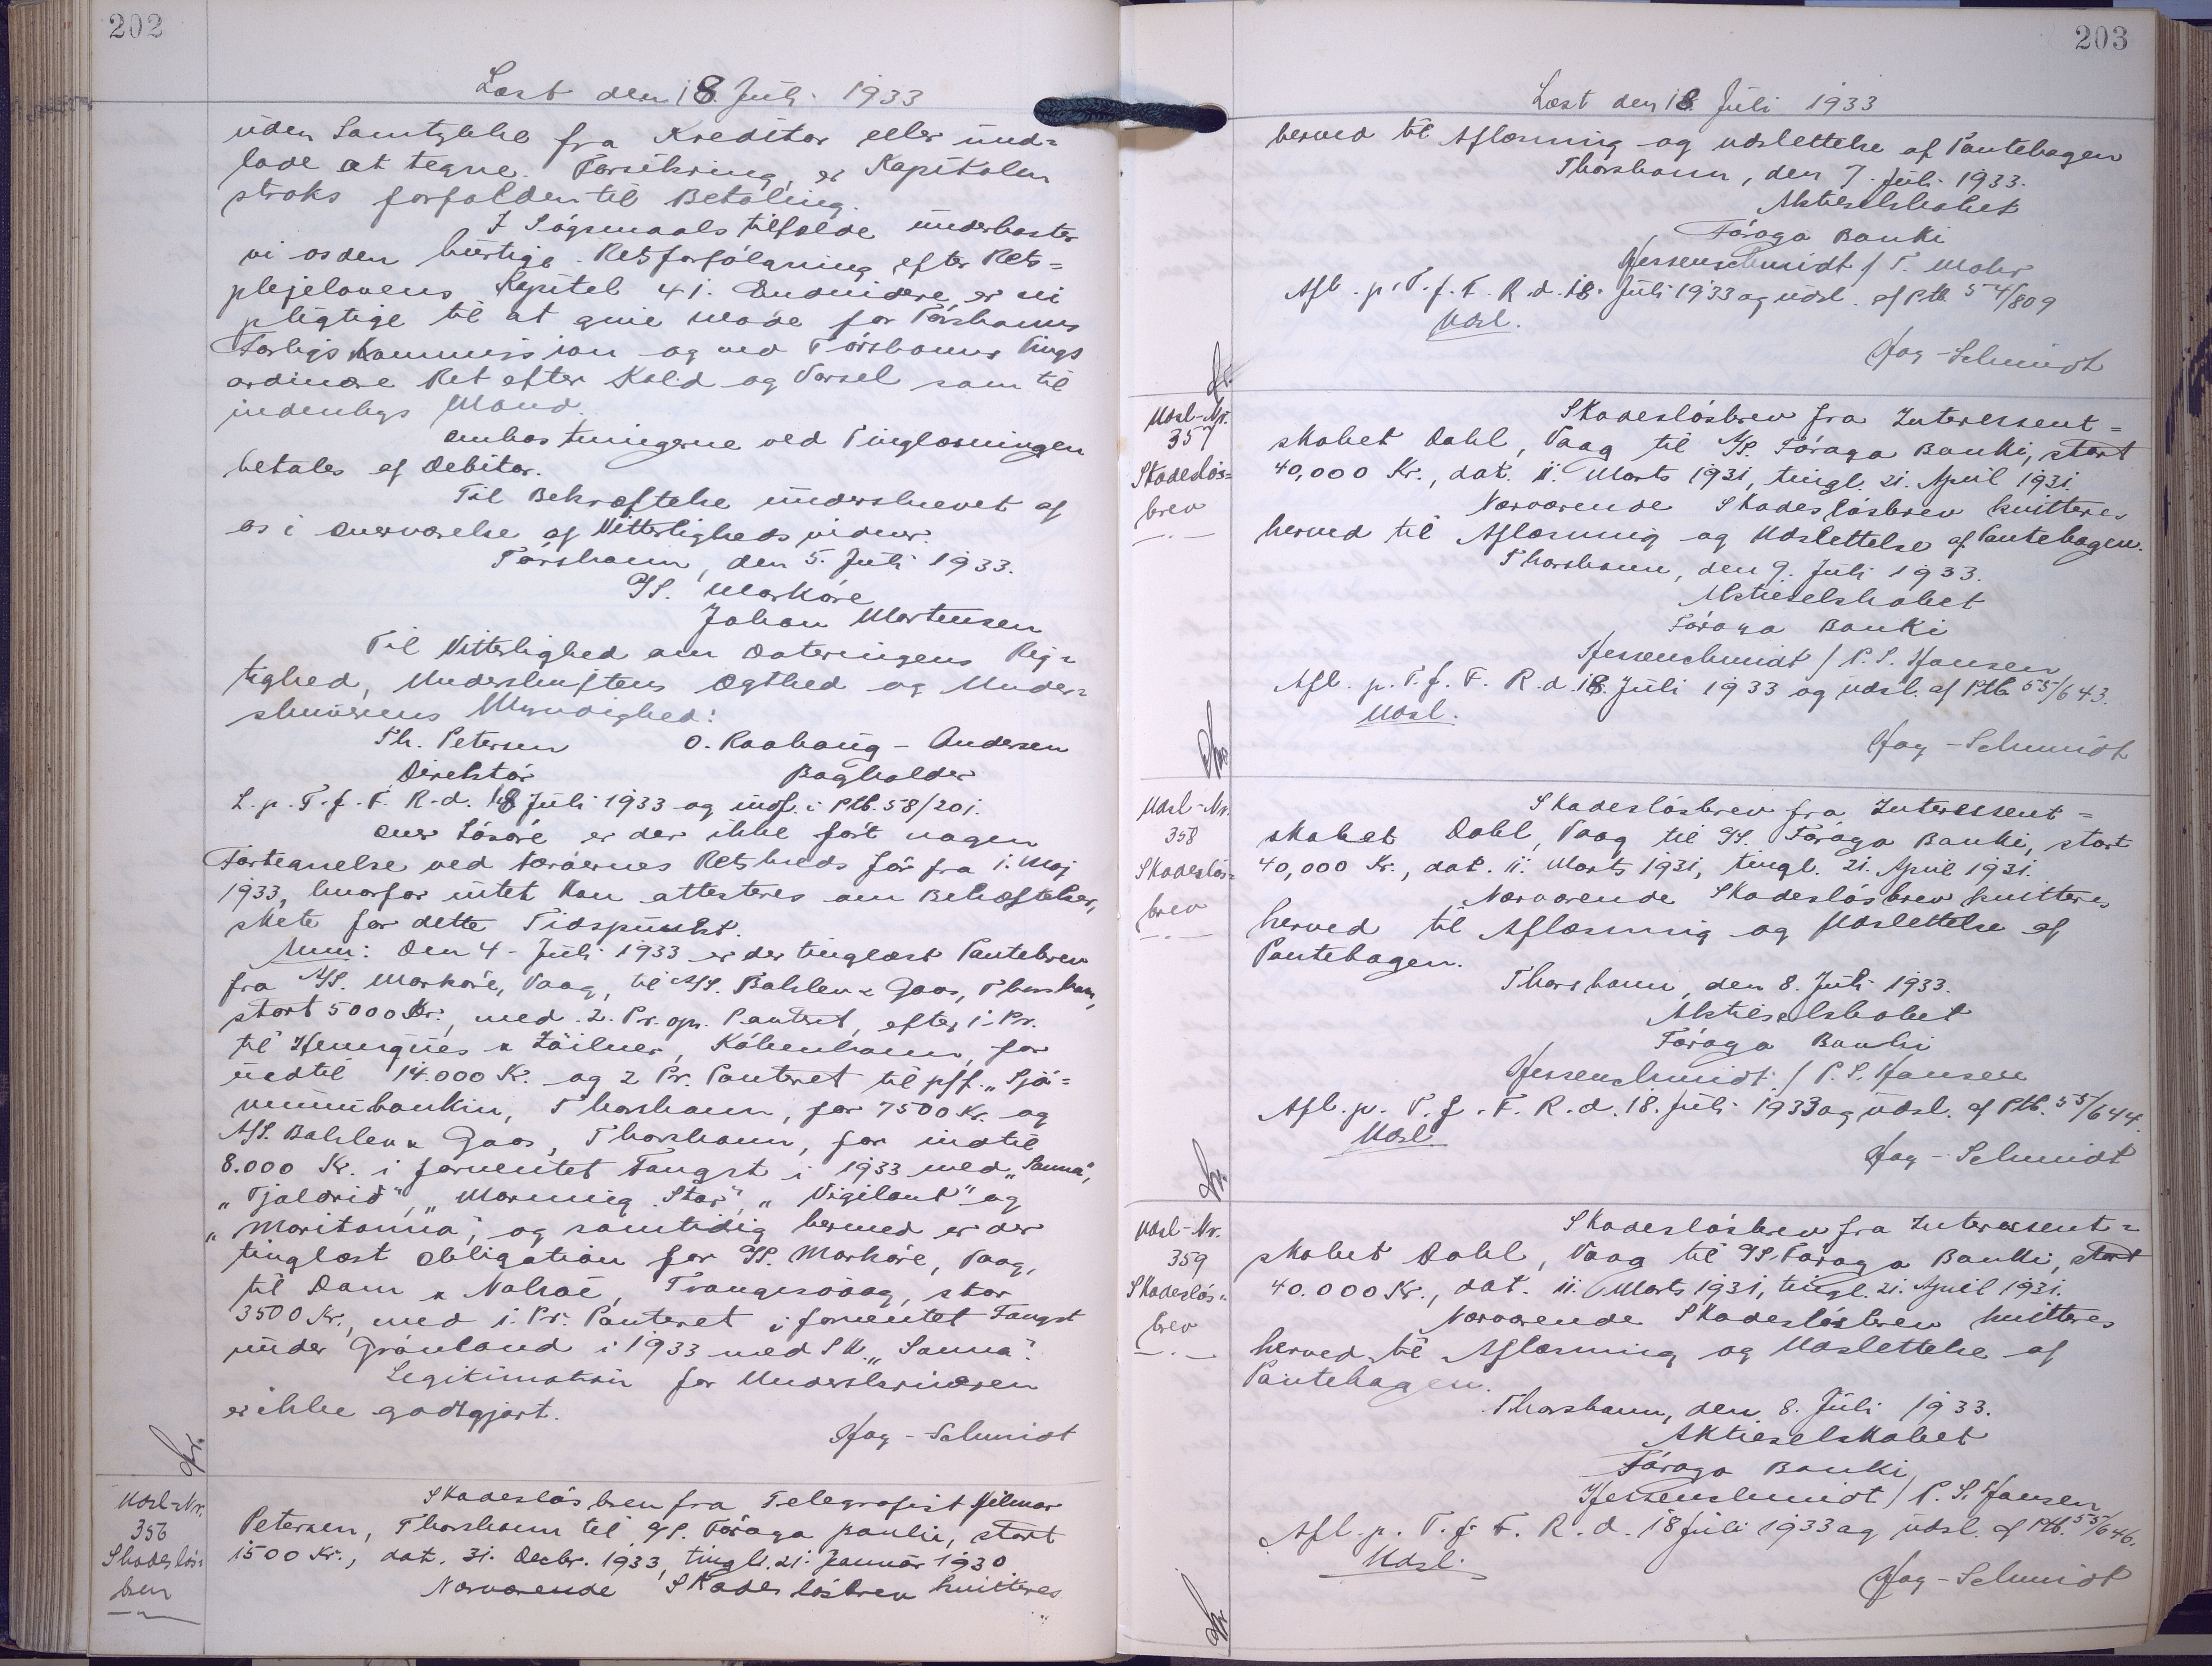 202
Læst den 18. Juli 1933
uden Samtykke fra Kreditor eller und=
lade at tegne Forsikring, er Kapitalen
straks forfalden til Betaling.
I Søgsmaalstilfælde underkaster
vi os den hurtige Retsforfølgning efter Rets=
plejelovens Kapitel 41. Endvidere er vi
pligtige til at give Møde for Tórshavns
Forligskommission og ved Tórshavns Tings
ordinære Ret efter Kald og Varsel som til
indenbys Mand.
Omkostningerne ved Tinglæsningen
betales af Debitor.
Til Bekræftelse underskrevet af
os i Overværelse af Vitterlighedsvidner.
Tórshavn, den 5. Juli 1933.
I/S. Markøre
Johan Mortensen
Til Vitterlighed om Dateringens Rig=
tighed, Underskriftens Ægthed og Under=
skriverens Myndighed:
Th. Petersen O. Raahaug - Andersen
Direktør Bogholder
L. p. T. f. F. R. d. 18 Juli 1933 og indf. i Ptb. 58/201.
Over Løsøre er der ikke ført nogen
Fortegnelse ved Færøernes Retskreds før fra 1. Maj
1933, hvorfor intet kan attesteres om Behæftelser,
skete før dette Tidspunkt.
Anm: Den 4 - Juli 1933 er der tinglæst Pantebrev
fra I/S. Markøre, Vaag, til A/S. Bahlen & Gaas, Thorshavn,
stort 5000 Kr., med 2. Pr. opr. Panteret, efter 1. Pr.
til Henriques & Zöilner, København, for
indtil 14.000 K. og 2 Pr. Panteret til pff. „Sjó=
vinnubankin, Thorshavn, for 7500 Kr. og
A/S. Bahlen & Gaas, Thorshavn, for indtil
8.000 Kr. i forventet Fangst i 1933 med „Sanna",
„Tjaldrið", „Morning Star", „Vigilant" og
„Maritanna", og samtidig hermed er der
tinglæst Obligation for I/S. Markøre, Vaag,
til Dam & Nolsøe, Trangisvaag, stor
3500 Kr., med 1. Pr. Panteret i forventet Fangst
under Grønland i 1933 med Sk. „Sanna".
Legitimation for Underskriveren
er ikke godtgjort.
Høg - Schmidt
Udsl-Nr.
356
Skadesløs=
brev
Skadesløsbrev fra Telegrafist Hilmar
Petersen, Thorshavn til A/S. Føroya Banki, stort
1500 Kr., dat. 31. Decbr. 1933, tingl. 21. Januar 1930
Nærværende Skadesløsbrev kvitteres
203
Læst den 18. Juli 1933
herved til Aflæsning og Udslettelse af Pantebogen
Thorshavn, den 7. Juli 1933.
Aktieselskabet
Føroya Banki
Hessenschmidt / T. Mohr
Afl. p. T. f. F. R. d. 18. Juli 1933 og udsl. af Ptb 54/809
Udsl.
Høg - Schmidt
Udsl-Nr.
357
Skadesløs=
brev
Skadesløsbrev fra Interessent=
skabet Dahl, Vaag til A/S. Føroya Banki, stort
40,000 Kr., dat. 11. Marts 1931, tingl. 21. April 1931.
Nærværende Skadesløsbrev kvitteres
herved til Aflæsning og Udslettelse af Pantebogen.
Thorshavn, den 9. Juli 1933.
Aktieselskabet
Føroya Banki
Hessenschmidt / P. S. Hansen
Afl. p. T. f. F. R. d. 18. Juli 1933 og udsl. af Ptb 55/643.
Udsl.
Høg - Schmidt
Udsl-Nr.
358
Skadesløs=
brev
Skadesløsbrev fra Interessent=
skabet Dahl, Vaag til A/S. Føroya Banki, stort
40,000 Kr., dat. 11. Marts 1931, tingl. 21. April 1931.
Nærværende Skadesløsbrev kvitteres
herved til Aflæsning og Udslettelse af
Pantebogen.
Thorshavn, den 8. Juli 1933.
Aktieselskabet
Føroya Banki
Hessenschmidt / P. S. Hansen
Afl. p. T. f. F. R. d. 18. Juli 1933 og udsl. af Ptb. 55/644.
Udsl
Høg - Schmidt
Udsl-Nr.
359
Skadesløs=
brev
Skadesløsbrev fra Interessent=
skabet Dahl, Vaag til A/S. Føroya Banki, stort
40.000 Kr., dat. 11. Marts 1931, tingl. 21. April 1931.
Nærværende Skadesløsbrev kvitteres
herved til Aflæsning og Udslettelse af
Pantebogen.
Thorshavn, den 8. Juli 1933.
Aktieselskabet
Føroya Banki
Hessenschmidt / P. S. Hansen
Afl. p. T. f. F. R. d. 18 Juli 1933 og udsl. af Ptb. 55/646.
Udsl.
Høg - Schmidt